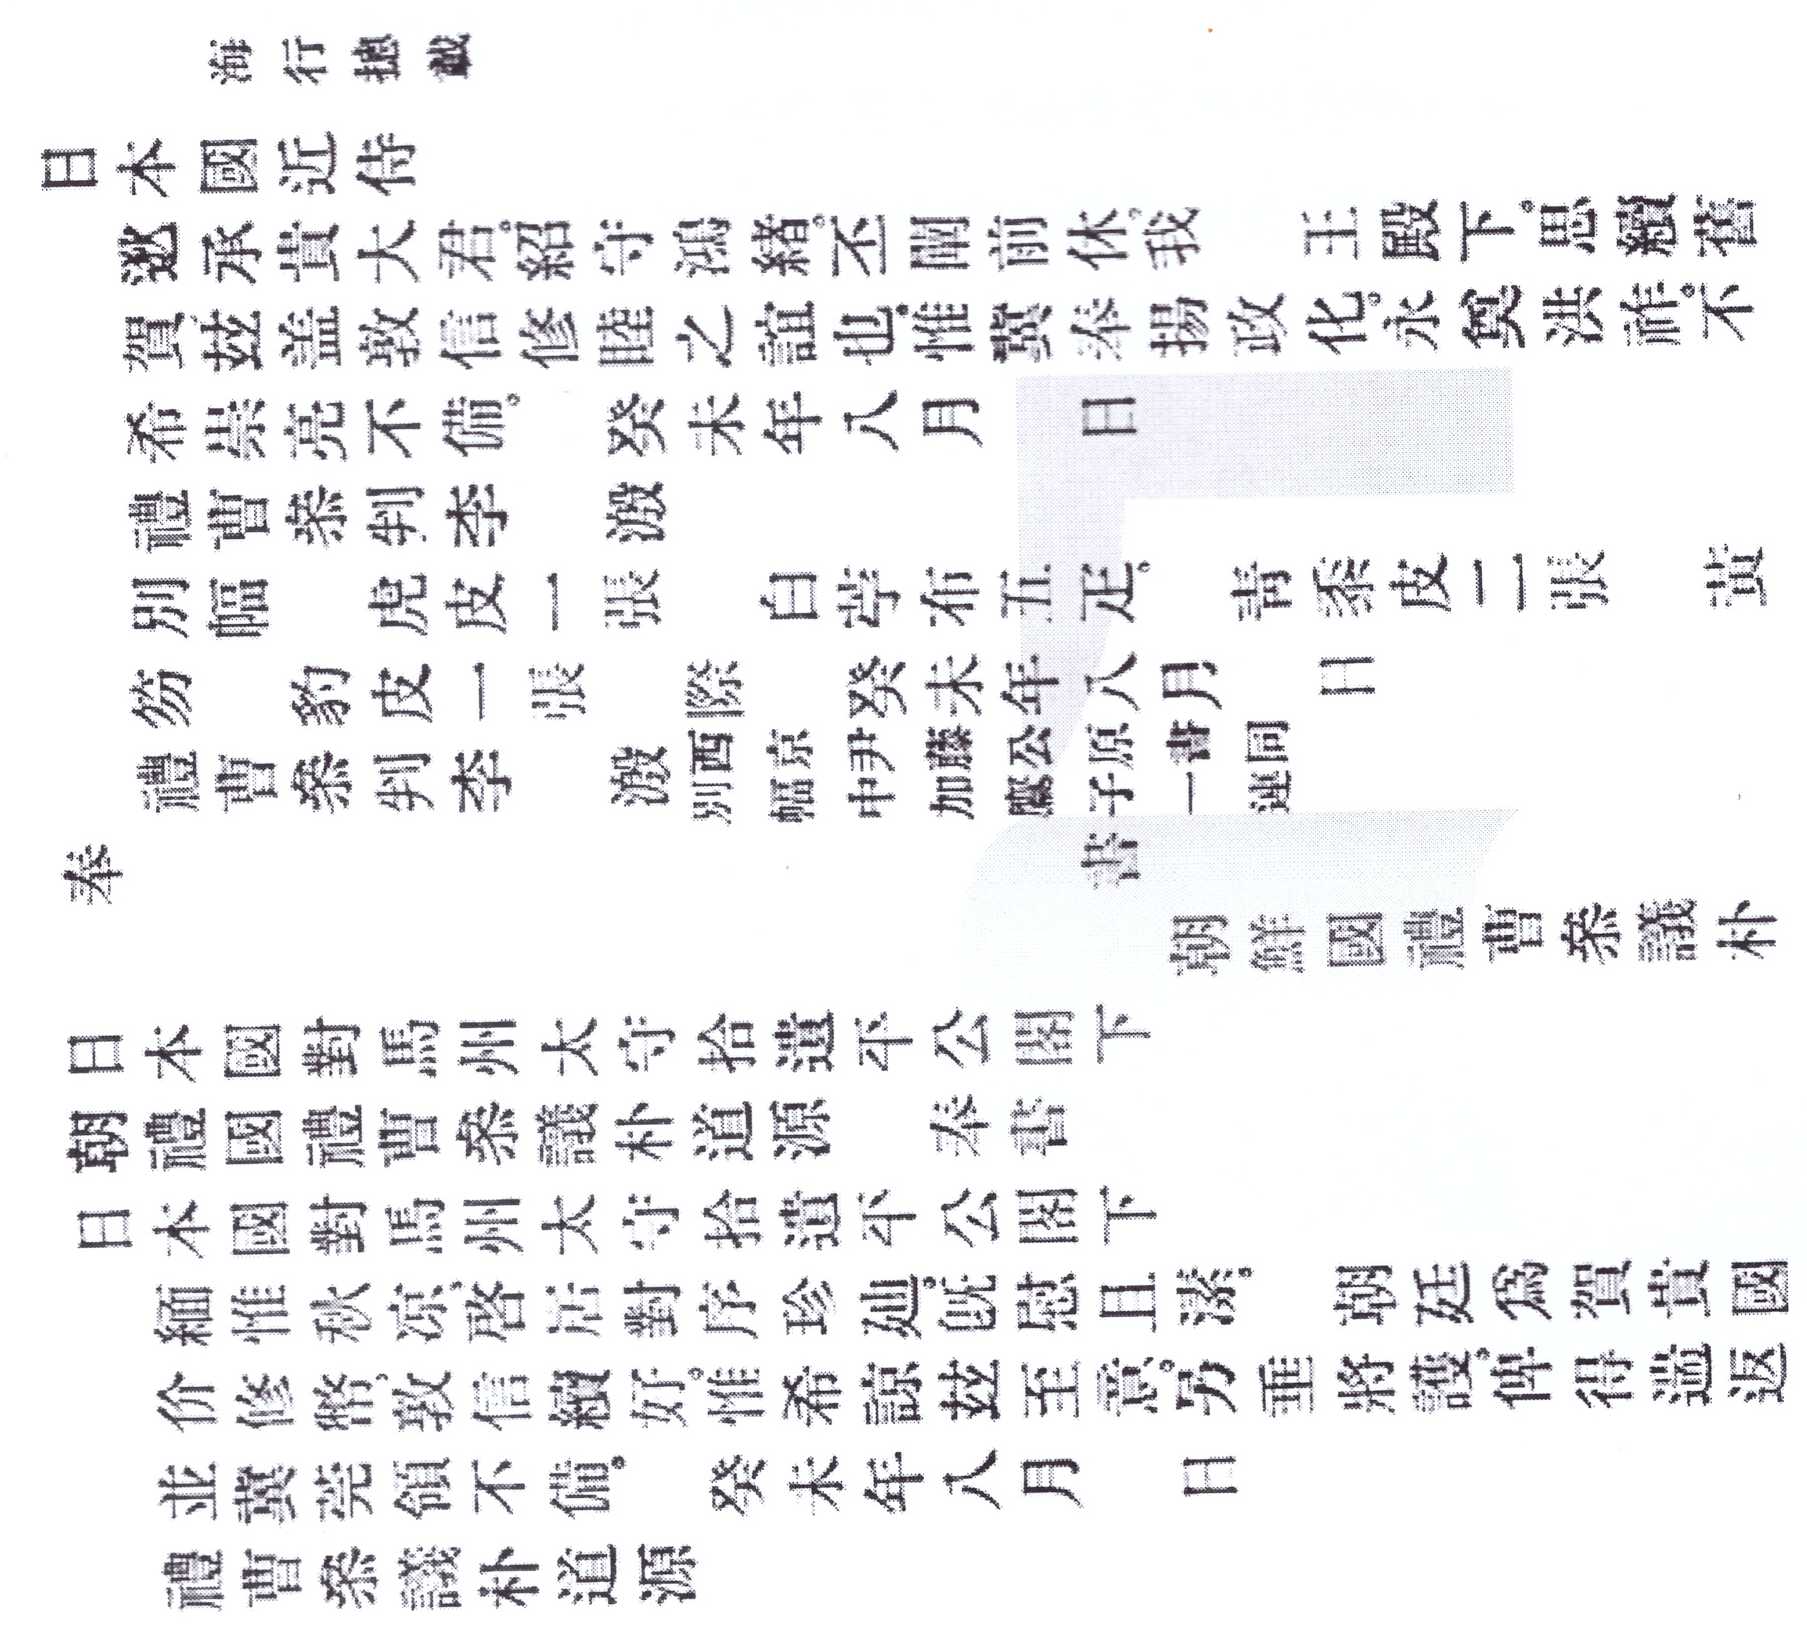 海行摠載
日本國近侍
邀承貴大君。紹守鴻緖。丕闡前休。我 王殿下。思纘舊
賀玆盖敦信修睦之誼也。惟冀奉揚政化。永奠洪祚。不
希崇亮不備。 癸未年八月 日
禮曹叅判李 潑
別幅 虎皮一張 白苧布五疋。 靑黍皮二張 黃
笏 豹皮一張 際 癸未年八月 日
禮曹叅判李 潑 西京尹藤公原書同
別幅中加鷹子一連
奉 書
朝鮮國禮曹叅議朴
日本國對馬州太守拾遺平公閤下
朝禮國禮曹叅議朴道源 奉書
日本國對馬州太守拾遺平公閤下
緬惟秋凉。啓居對序珍毖。旣慰且溸。 朝廷爲賀貴國
价修幣、敦信纘好。惟希諒玆至意。另垂將護。俾得遄返
並冀莞領不備。 癸未年八月 日
禮曹叅議朴道源